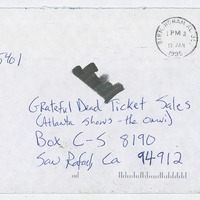 BIRMINGHAM, AL
PM
13 JAN
1995
5461
Grateful Dead Ticket Sales
(Atlanta shows - the Omni)
Box C-S 8190
San Rafael, Ca 94912